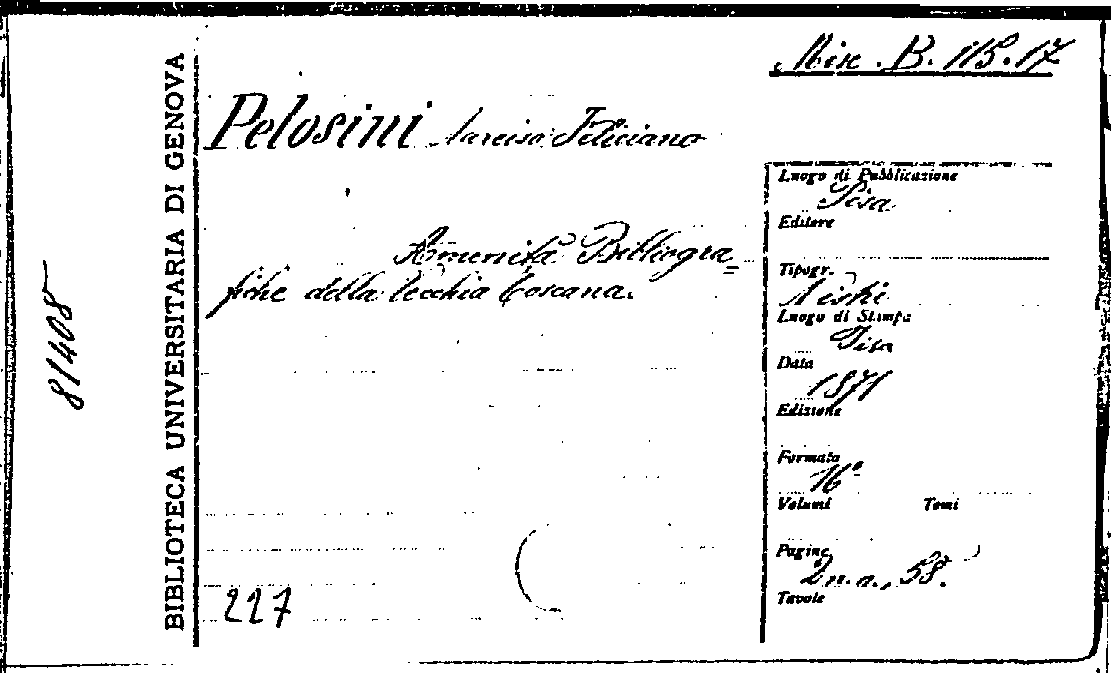 Misc. B. 115.17
BIBLIOTECA UNIVERSITARIA DI GENOVA
81408
Pelosini Narciso Feliciano
Amenità Bibliogra=
fiche della Vecchia Toscana.
Luogo di Pubblicazione
Pisa
Editore
Tipogr.
Nistri
Luogo di Stampa
Pisa
Data
1871
Edizione
Formato
16°
Volumi Tomi
Pagine
2 n.a., 58.
Tavole
227